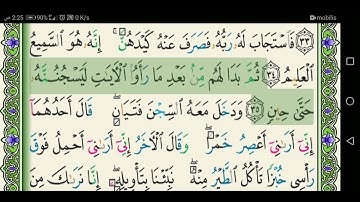 ص 2:25 90% 0 K/s mobilis
٣٣ فَاسْتَجَابَ لَهُۥ رَبُّهُۥ فَصَرَفَ عَنْهُ كَيْدَهُنَّۚ إِنَّهُۥ هُوَ السَّمِيعُ
الْعَلِيمُ ٣٤ ثُمَّ بَدَا لَهُم مِّنۢ بَعْدِ مَا رَأَوُا الْأٓيَٰتِ لَيَسْجُنُنَّهُۥ
حَتَّىٰ حِينٍ ٣٥ وَدَخَلَ مَعَهُ السِّجْنَ فَتَيَانِۖ قَالَ أَحَدُهُمَا
إِنِّي أَرَىٰنِي أَعْصِرُ خَمْرًاۖ وَقَالَ الْأٓخَرُ إِنِّي أَرَىٰنِي أَحْمِلُ فَوْقَ
رَأْسِي خُبْزًا تَأْكُلُ الطَّيْرُ مِنْهُۖ نَبِّئْنَا بِتَأْوِيلِهِۦۖ إِنَّا نَرَىٰكَ مِنَ